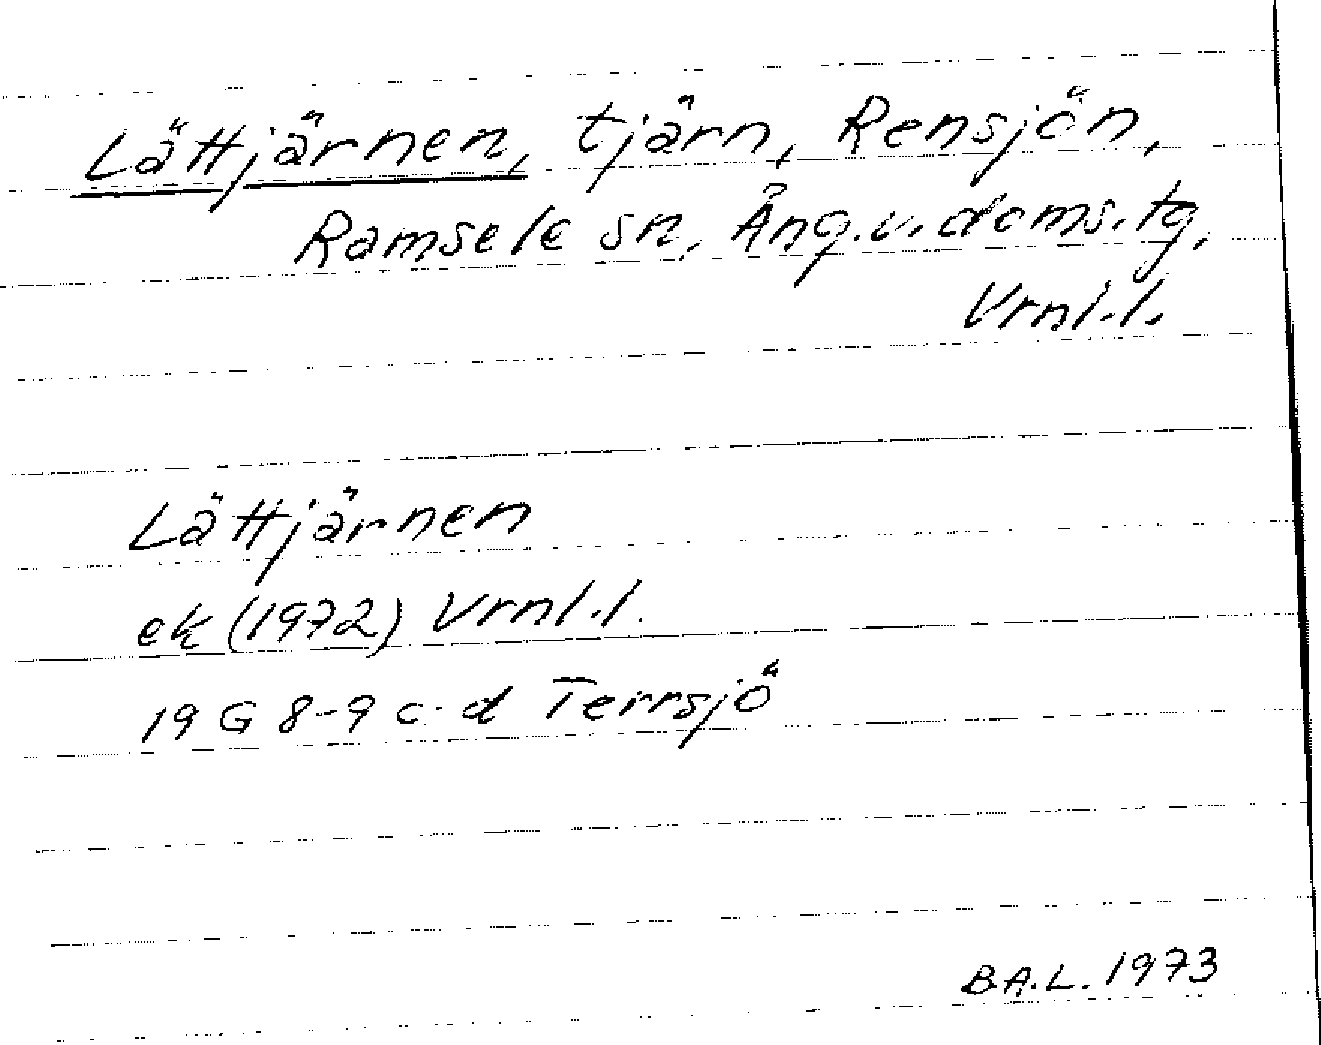 Lättjärnen, tjärn, Rensjön,
Ramsele sn, Ång.v.doms.tg,
Vrnl.l.
Lättjärnen
ek (1972) Vrnl.l.
19 G 8-9 c-d Terrsjö
B.A.L. 1973